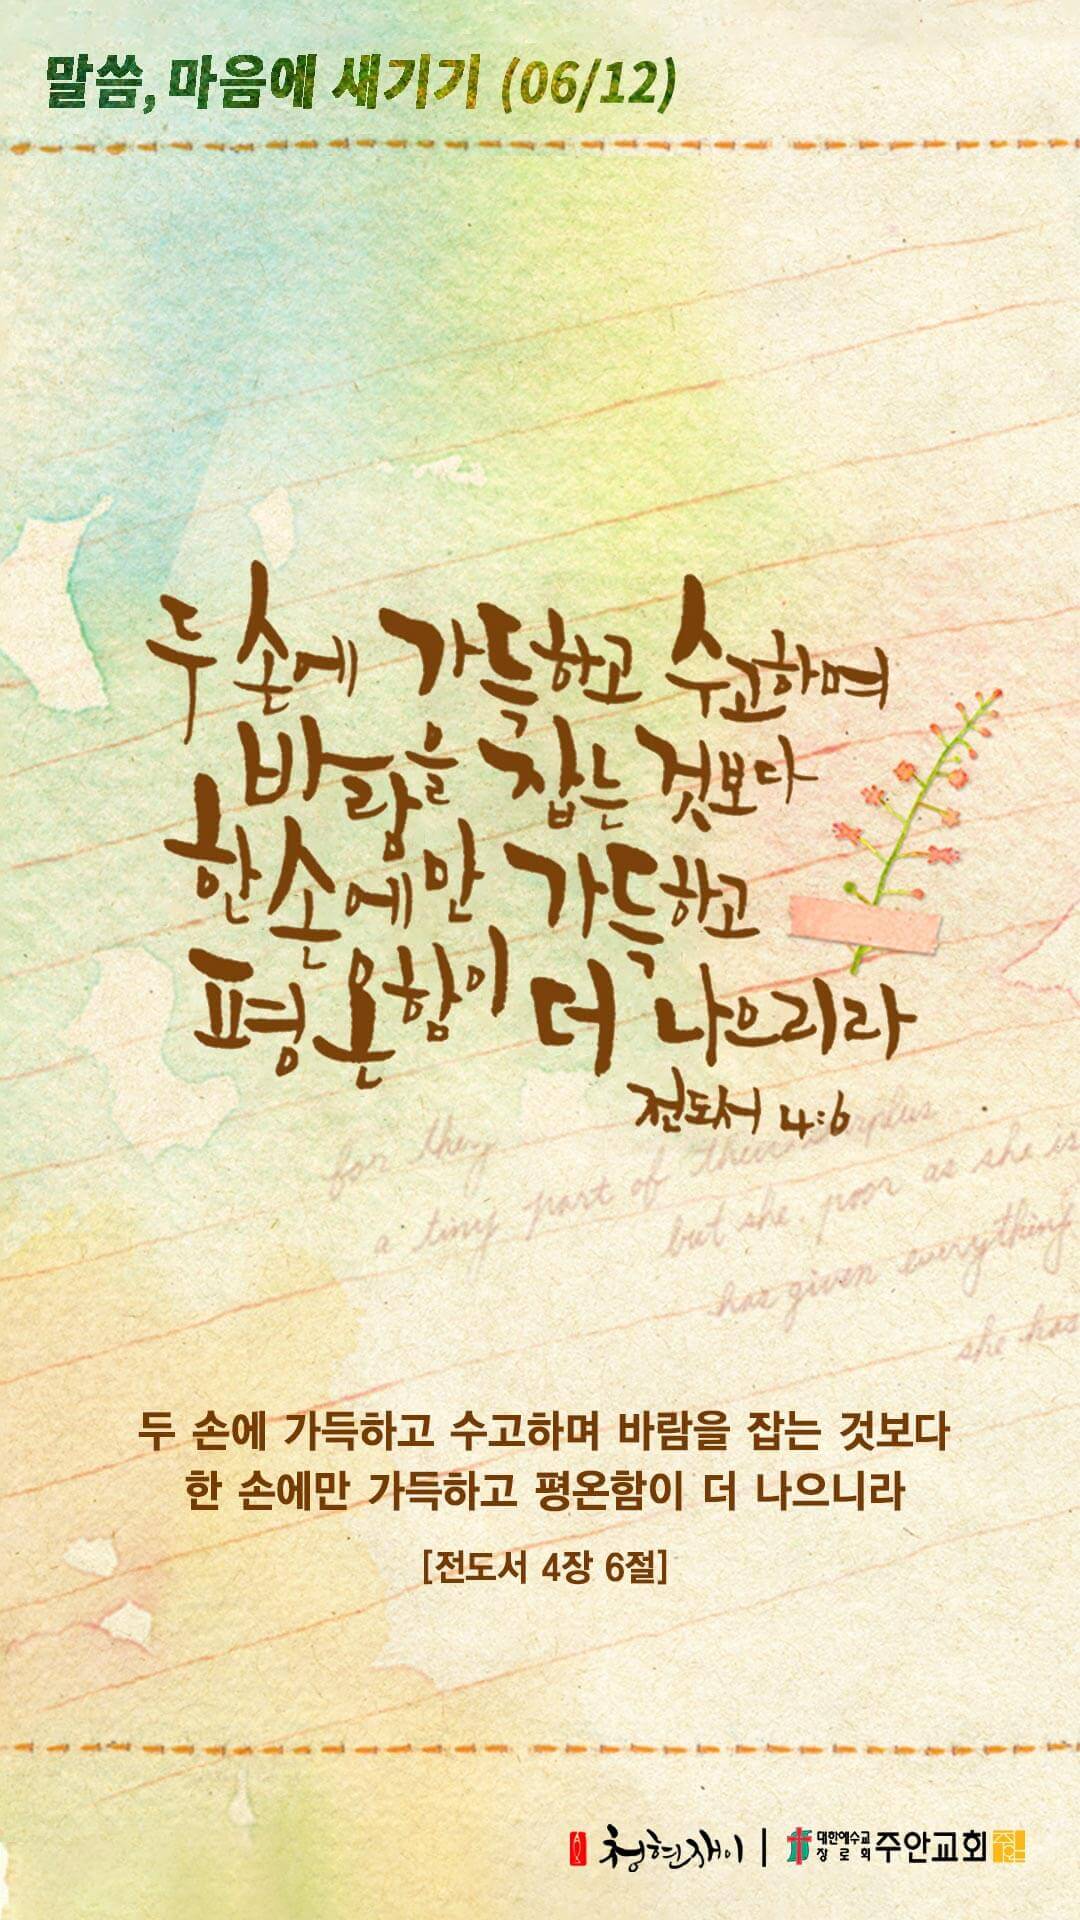 말씀, 마음에 새기기 (06/12)
두 손에 가득하고 수고하며
바람을 잡는 것보다
한 손에만 가득하고
평온함이 더 나으리라
전도서 4:6
for they
a tiny part of their surplus
but she, poor as she is
has given everything
she has
두 손에 가득하고 수고하며 바람을 잡는 것보다
한 손에만 가득하고 평온함이 더 나으니라
[전도서 4장 6절]
청현재이 | 대한예수교장로회 주안교회